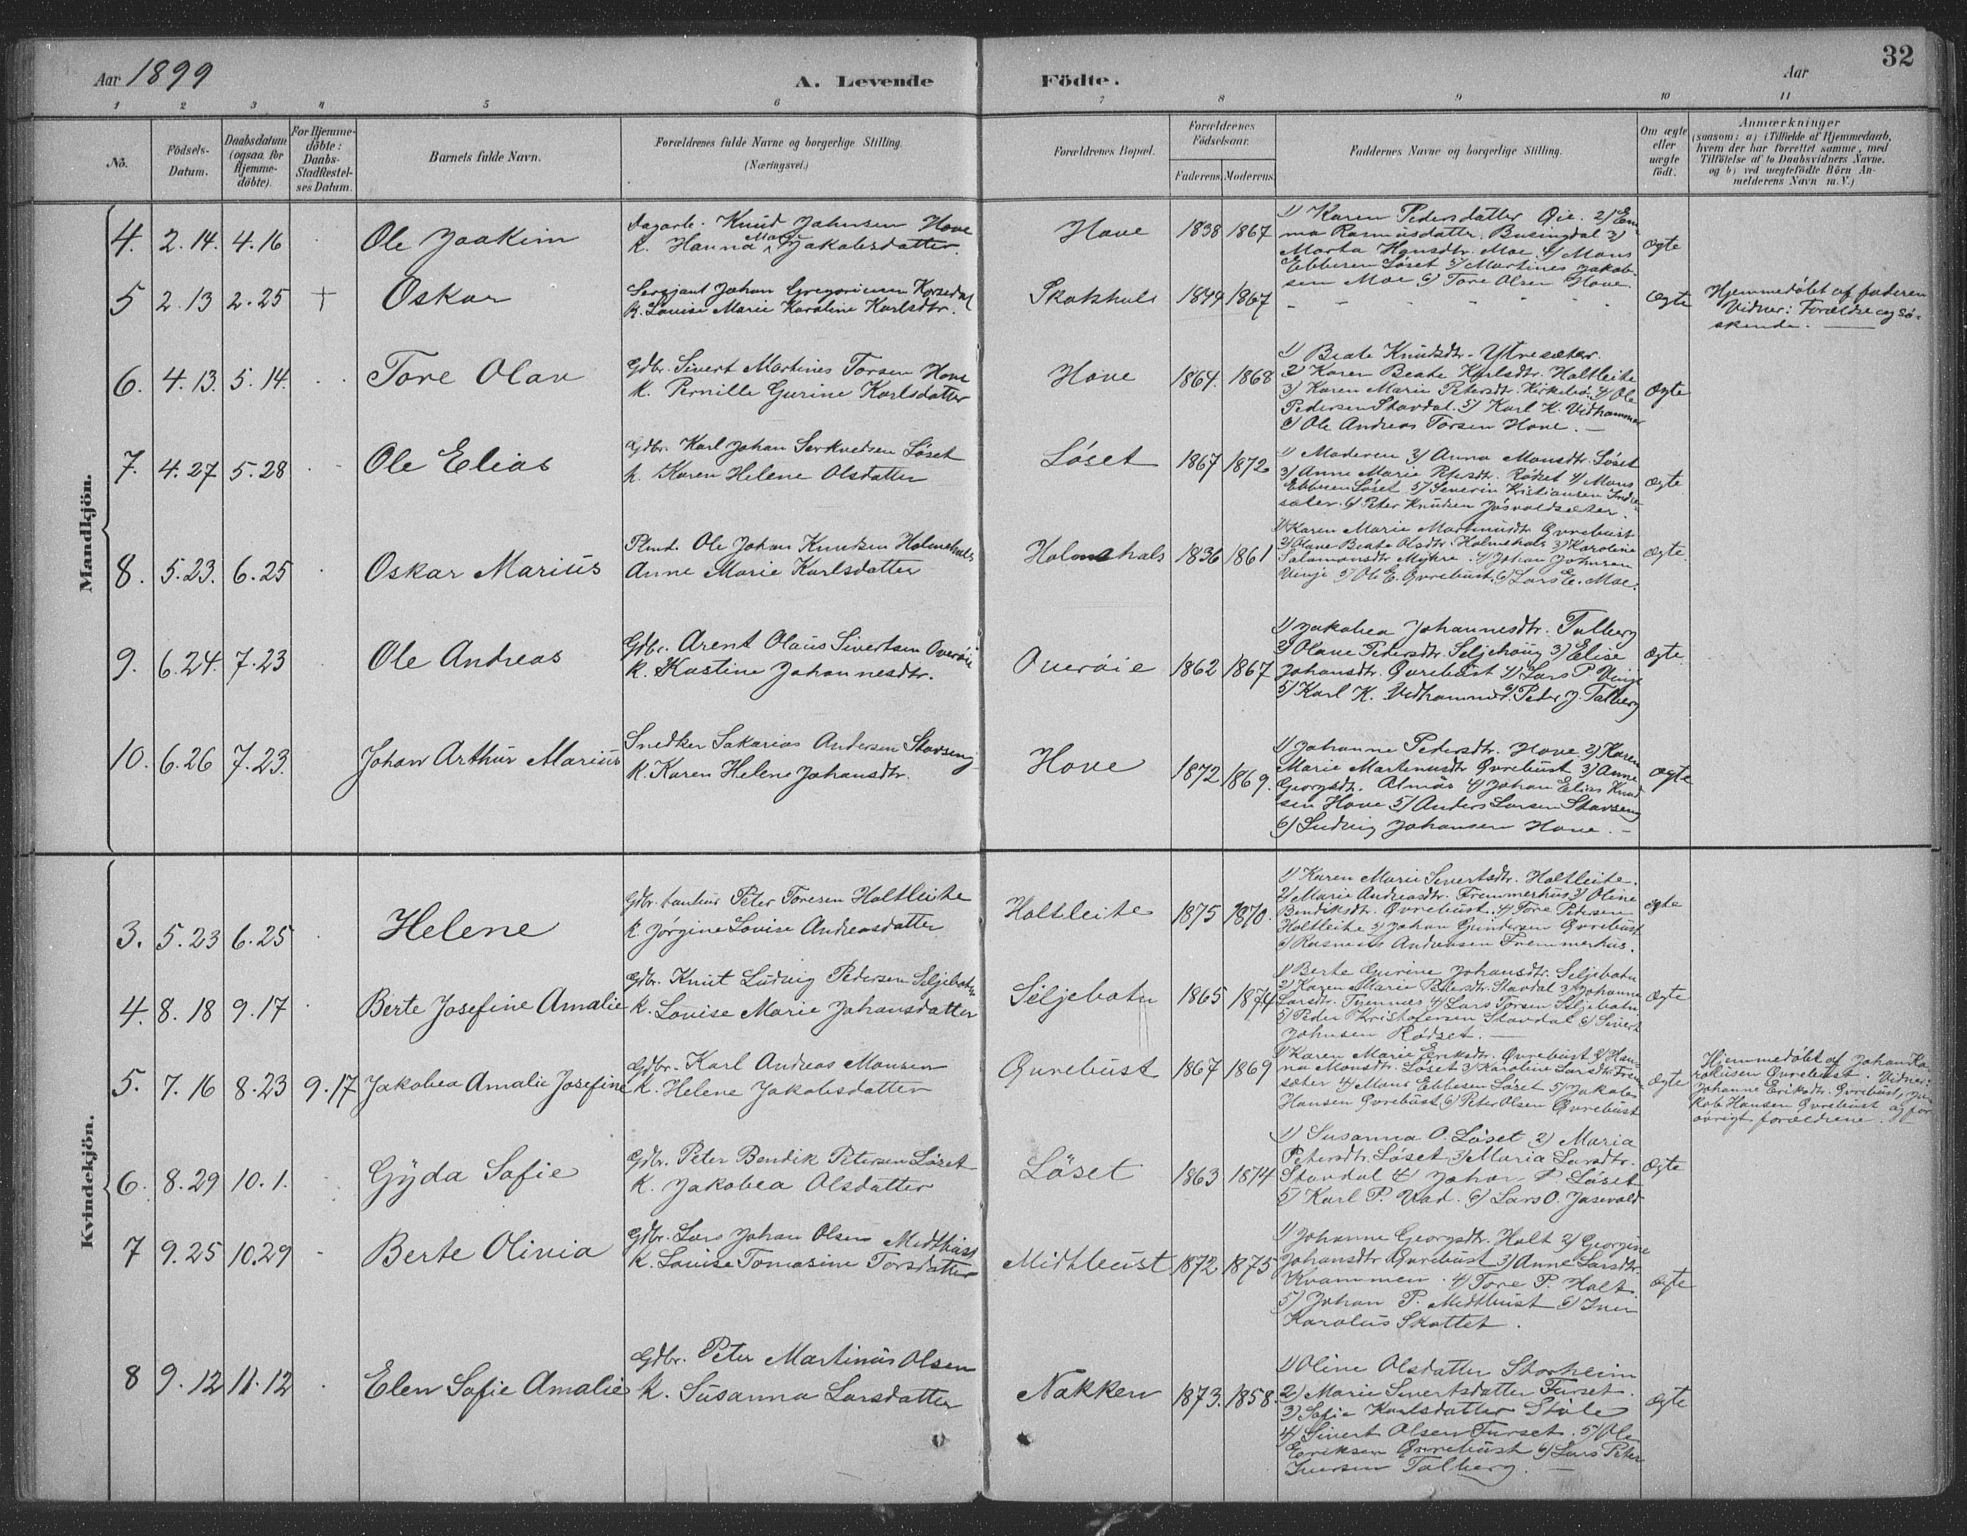 Aar 1899
A. Levende
Födte.
Aar
32
1 2 3 4 5 6 7 8 9 10 11
No.
Födsels-
Datum.
Daabsdatum
(ogsaa for
Hjemme-
döbte).
For Hjemme-
döbte:
Daabs-
Stadfestel-
ses Datum.
Barnets fulde Navn.
Forældrenes fulde Navne og borgerlige Stilling.
(Næringsvei.)
Forældrenes Bopæl.
Forældrenes
Födselsaar.
Faderens. Moderens.
Faddernes Navne og borgerlige Stilling.
Om ægte
eller
uægte
födt.
Anmærkninger
(saasom: a) i Tilfælde af Hjemmedaab,
hvem der har forrettet samme, med
Tilföielse af to Daabsvidners Navne.
og b) ved uægtefödte Börn An-
melderens Navn m. V.)
Mandkjön.
4. 2.14. 4.16
Ole Joakim
Dagarb. Knud Johnsen Hove
k. Hanna Marie Jakobsdatter.
Hove
1838 1867
1) Karen Pedersdatter Øie. 2) Em-
ma Rasmusdatter 3)
Marta Hansdtr. Moe. 4) Mons
Ebbesen Løset 5) Martines Jakob-
sen Moe 6) Tore Olsen Hove.
ægte
5 2.13 2.25 +
Oskar
Sergjant Johan Gregoriusen Korsedal
k. Lovise Marie Karoline Karlsdtr.
1844 1867
Ægte
Hjemmedøbt af faderen
Vidner: Forældre og sø-
skende.
6. 4.13. 5.14.
Tore Olav
Gdbr. Sivert Martines Torsen Hove
k. Pernille Gurine Karlsdatter
Hove
1864. 1868
1) Beate Knudsdtr. Ytresæter.
2) Karen Beate Karlsdtr. Holtleite
3) Karen Marie Petersdtr. Kirkebø. 4) Ole
Pedersen Stavdal. 5) Karl K. Vidhammer
6) Ole Andreas Torsen Hove.
Ægte
7. 4.27 5.28
Ole Elias
Gdbr. Karl Johan Løset
k. Karen Helene Olsdatter
Løset
1867 1872
1) Moderen 2) Anna Monsdtr. Løset
3) Anne Marie Røket 4) Mons
Ebbesen Løset 5) Severin Kristiansen Indre-
sæter. 6) Peter Knudsen
Ægte
8. 5.23. 6.25
Oskar Marius
Ole Johan Knudsen Holmehals
Anne Marie Karlsdatter
Holmehals
1836 1861
1) Karen Marie Martinusdtr. Øvrebust
2) Olave Beate Olsdtr. Holmehals 3) Karoline
Salamonsdtr. Myhre. 4) Johan Johnsen
5) Ole E. Øvrebust. 6) Lars E. Moe.
Ægte
9. 6.24. 7.23
Ole Andreas
Gdbr. Arent Olaus Sivertsen Overøie
k. Kastine Johannesdtr.
Overøie
1862 1867
1) Jakobea Johannesdtr. Talberg
2) Olave Petersdtr. Seljehaug 3) Elise
Johansdtr. Øvrebust 4) Lars P.
5) Karl K. Vidhammer. 6) Peder J. Talberg
Ægte
10. 6.26 7.23.
Johan Arthur Marius
Snedker Sakarias Andersen Stavseng
k. Karen Helene Johansdtr.
Hove
1872 1869.
1) Johanne Pedersdtr. Hove 2) Karen
Marie Martinusdtr. Øvrebust 3) Anne
Georgsdtr. Almås 4) Johan Elias Knud-
sen Hove 5) Anders Larsen Stavseng
6) Ludvig Johansen Hove.
Ægte
Kvindekjön.
3. 5.23 6.25
Helene
Gdbr. Peter Toresen Holtleite
k. Jørgine Lovise Andreasdatter
Holtleite
1875 1870.
1) Karen Marie Sivertsdtr. Holtleite.
2) Marie Andreasdtr. Fremmerhus 3) Oline
Bendiksdtr. Øvrebust. 4) Tore Pedersen
Holtleite 5) Johan Gundersen Øvrebust
6) Rasmus Andreasen Fremmerhus.
ægte
4. 8.18 9.17
Berte Josefine Amalie
Gdbr. Knut Ludvig Pedersen Seljebotn
k. Lovise Marie Johansdatter
Seljebotn
1865 1874
1) Berte Gurine Johansdtr. Seljebotn
2) Karen Marie Stavdal 3) Johanne
Larsdtr. Tjennes 4) Lars Torsen Seljebotn
5) Peder Kristofersen Stavdal 6) Sivert
Johnsen Rødset.
Ægte
5. 7.16 8.23 9.17
Jakobea Amalie Josefine
Gdbr. Karl Andreas Monsen
k. Helene Jakobsdatter
Øvrebust
1867 1869
1) Karen Marie Eriksdtr. Øvrebust 2) Han-
na Monsdtr. Løset 3) Karoline Larsdtr.
sæter 4) Mons Ebbesen Løset 5) Jakob
Hansen Øvrebust 6) Peter Olsen Øvrebust
Ægte
Hjemmedøbt af Johan
Øvrebust. Vidner:
Johanne Eriksdtr. Øvrebust, Ja-
kob Hansen Øvrebust og for
øvrigt forældrene.
6. 8.29 10.1.
Gÿda Sofie
Gdbr. Peter Bendik Petersen Løset
k. Jakobea Olsdatter
Løset
1863 1874
1) Susanna O. Løset 2) Maria
Petersdtr. Løset 3) Maria Larsdtr.
Stavdal 4) Johan P. Løset
5) Karl P. Vad. 6) Lars O.
Ægte
7 9.25 10.29
Berte Olivia
Gdbr. Lars Johan Olsen Midtbust
k. Lovise Tomasine Torsdatter
Midtbust
1872 1875
1) Johanne Georgsdtr. Holt 2) Georgine
Johansdtr. Øvrebust 3) Anne Larsdtr.
Kvammen. 4) Tore P. Holt.
5) Johan P. Midtbust 6) Iver
Karolus Skottet.
ægte
8 9.12 11.12
Elen Sofie Amalie
Gdbr. Peter Martinus Olsen
k. Susanna Larsdatter
Nakken
1873. 1858.
1) Oline Olsdatter Storheim
2) Marie Sivertsdatter Furset.
3) Sofie Karlsdatter Støle
4) Sivert Olsen Furset. 5) Ole
Eriksen Øvrebust 6) Lars Peter
Iversen Talberg.
ægte